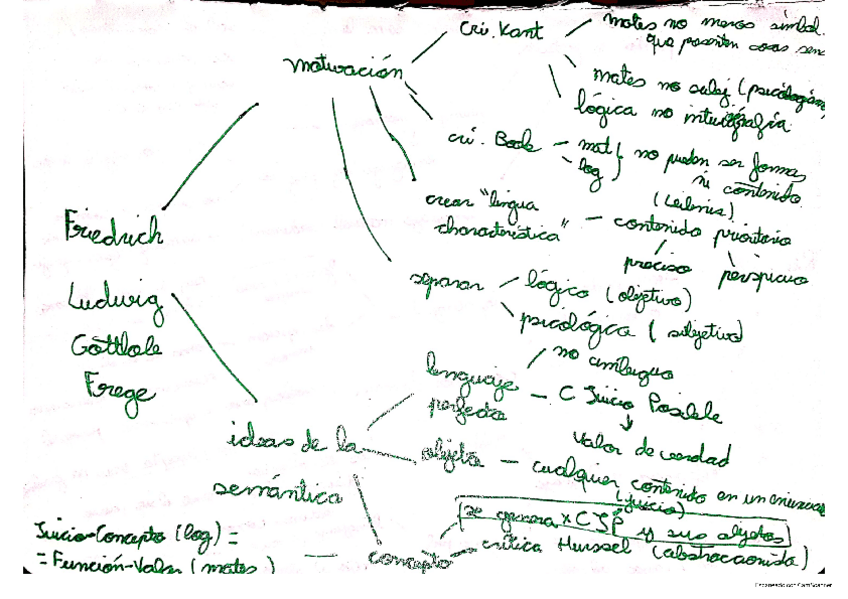 Friedrich
Ludwig
Gottlole
Frege
motivación
cri. Kant
mates no meros símbol.
que permiten cosas sens
mates no subj (psicologism
lógica no
cri. Boole
mat
log
no pueden ser formas
ni contenido
crear "lingua
characteristica"
(Leibniz)
contenido prioritario
preciso
perspicuo
separar
lógico (objetivo)
psicológica (subjetivo)
ideas de la
semántica
lenguaje
perfecto
no ambiguo
C Juicio Posible
Valor de verdad
objeto
cualquier contenido en un enunciado
(juicio)
concepto
se genera x CJP y sus objetos
crítica Hurssel (abstraccionista)
Juicio-Concepto (log) =
= Función-Valor (mates)
Escaneado con CamScanner